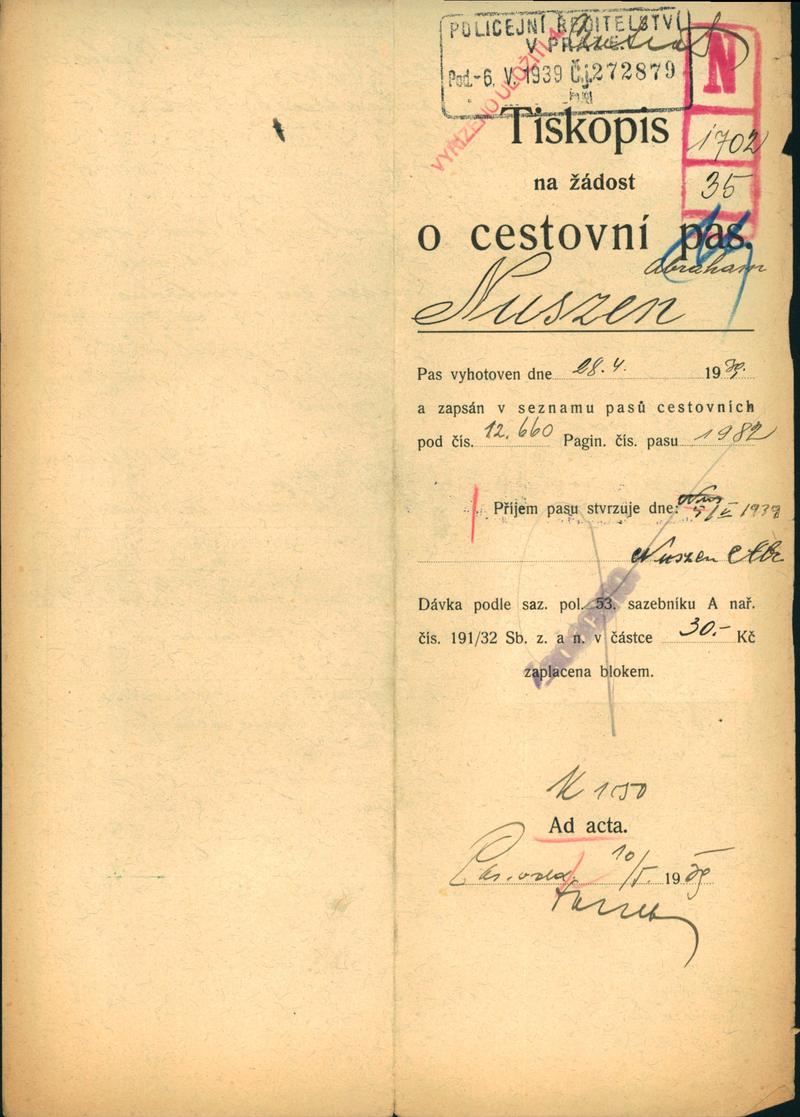 POLICEJNÍ ŘEDITELSTVÍ
V PRAZE
Pod.-6. V. 1939 Č.j. 272879
VYŘÍZENO ULOŽITI
N
1702
35
Tiskopis
na žádost
o cestovní pas.
Abraham
Nuszen
Pas vyhotoven dne 28. 4. 1939.
a zapsán v seznamu pasů cestovních
pod čís. 12.660 Pagin. čís. pasu 1982
Příjem pasu stvrzuje dne: Nus 5/V 1939
Nuszen Abr
Dávka podle saz. pol. 53. sazebníku A nař.
čís. 191/32 Sb. z. a n. v částce 30.- Kč
zaplacena blokem.
K 1050
Ad acta.
10/V. 1939